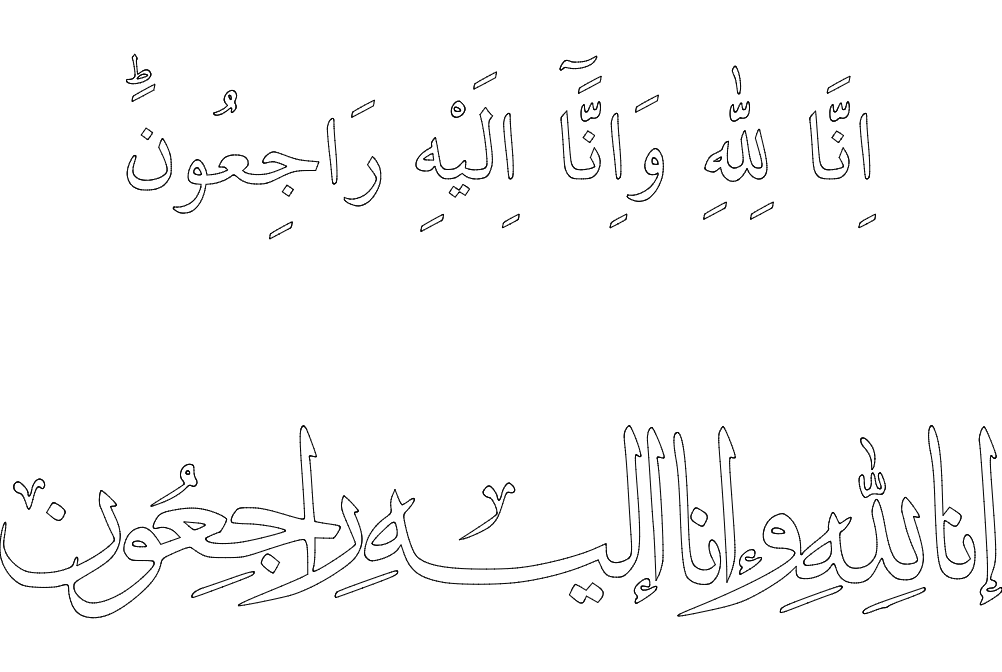 اِنَّا لِلّٰهِ وَاِنَّآ اِلَيْهِ رَاجِعُونَؕ
إنا لله وإنا إليه راجعون